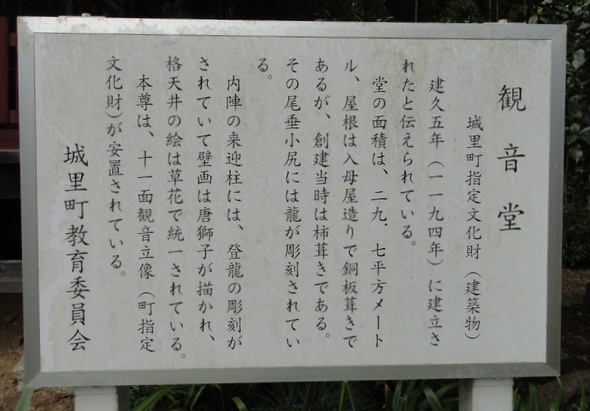 観音堂
城里町指定文化財（建築物）
建久五年（一一九四年）に建立さ
れたと伝えられている。
堂の面積は、二九．七平方メート
ル、屋根は入母屋造りで銅板葺きで
あるが、創建当時は杮葺きである。
その尾垂小尻には龍が彫刻されてい
る。
内陣の来迎柱には、登龍の彫刻が
されていて壁画は唐獅子が描かれ、
格天井の絵は草花で統一されている。
本尊は、十一面観音立像（町指定
文化財）が安置されている。
城里町教育委員会